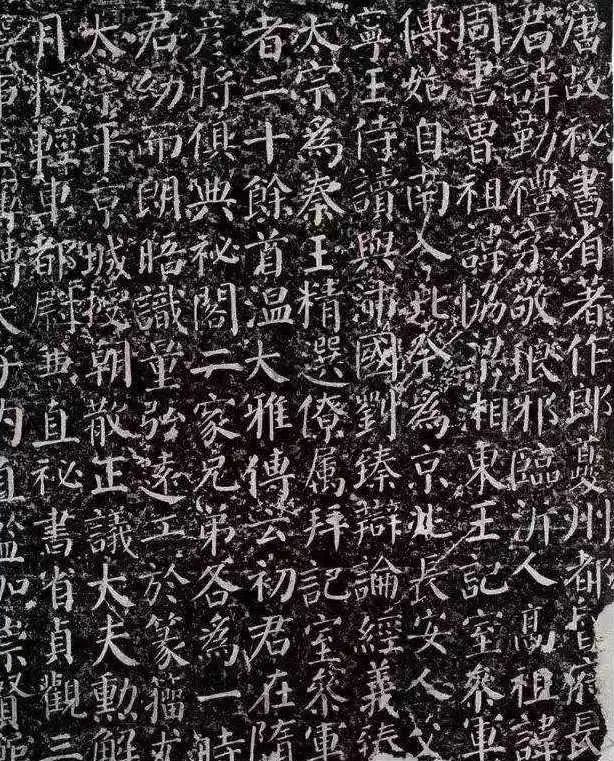 唐故祕書省著作郎夔州都督府長
君諱勤禮字敬琅邪臨沂人高祖諱
周書曾祖諱協梁湘東王記室參軍
傳始自南入北今為京兆長安人父
寧王侍讀與沛國劉臻辯論經義臻
太宗為秦王精選僚属拜記室參軍
者二十餘首温大雅傳云初君在隋
彦將俱典祕閣二家兄弟各為一時
君幼而朗晤識量弘遠工於篆籀尤
太宗平京城授朝散正議大夫勳解
月授輕車都尉兼直祕書省貞觀三
轉太子内直監加崇賢館